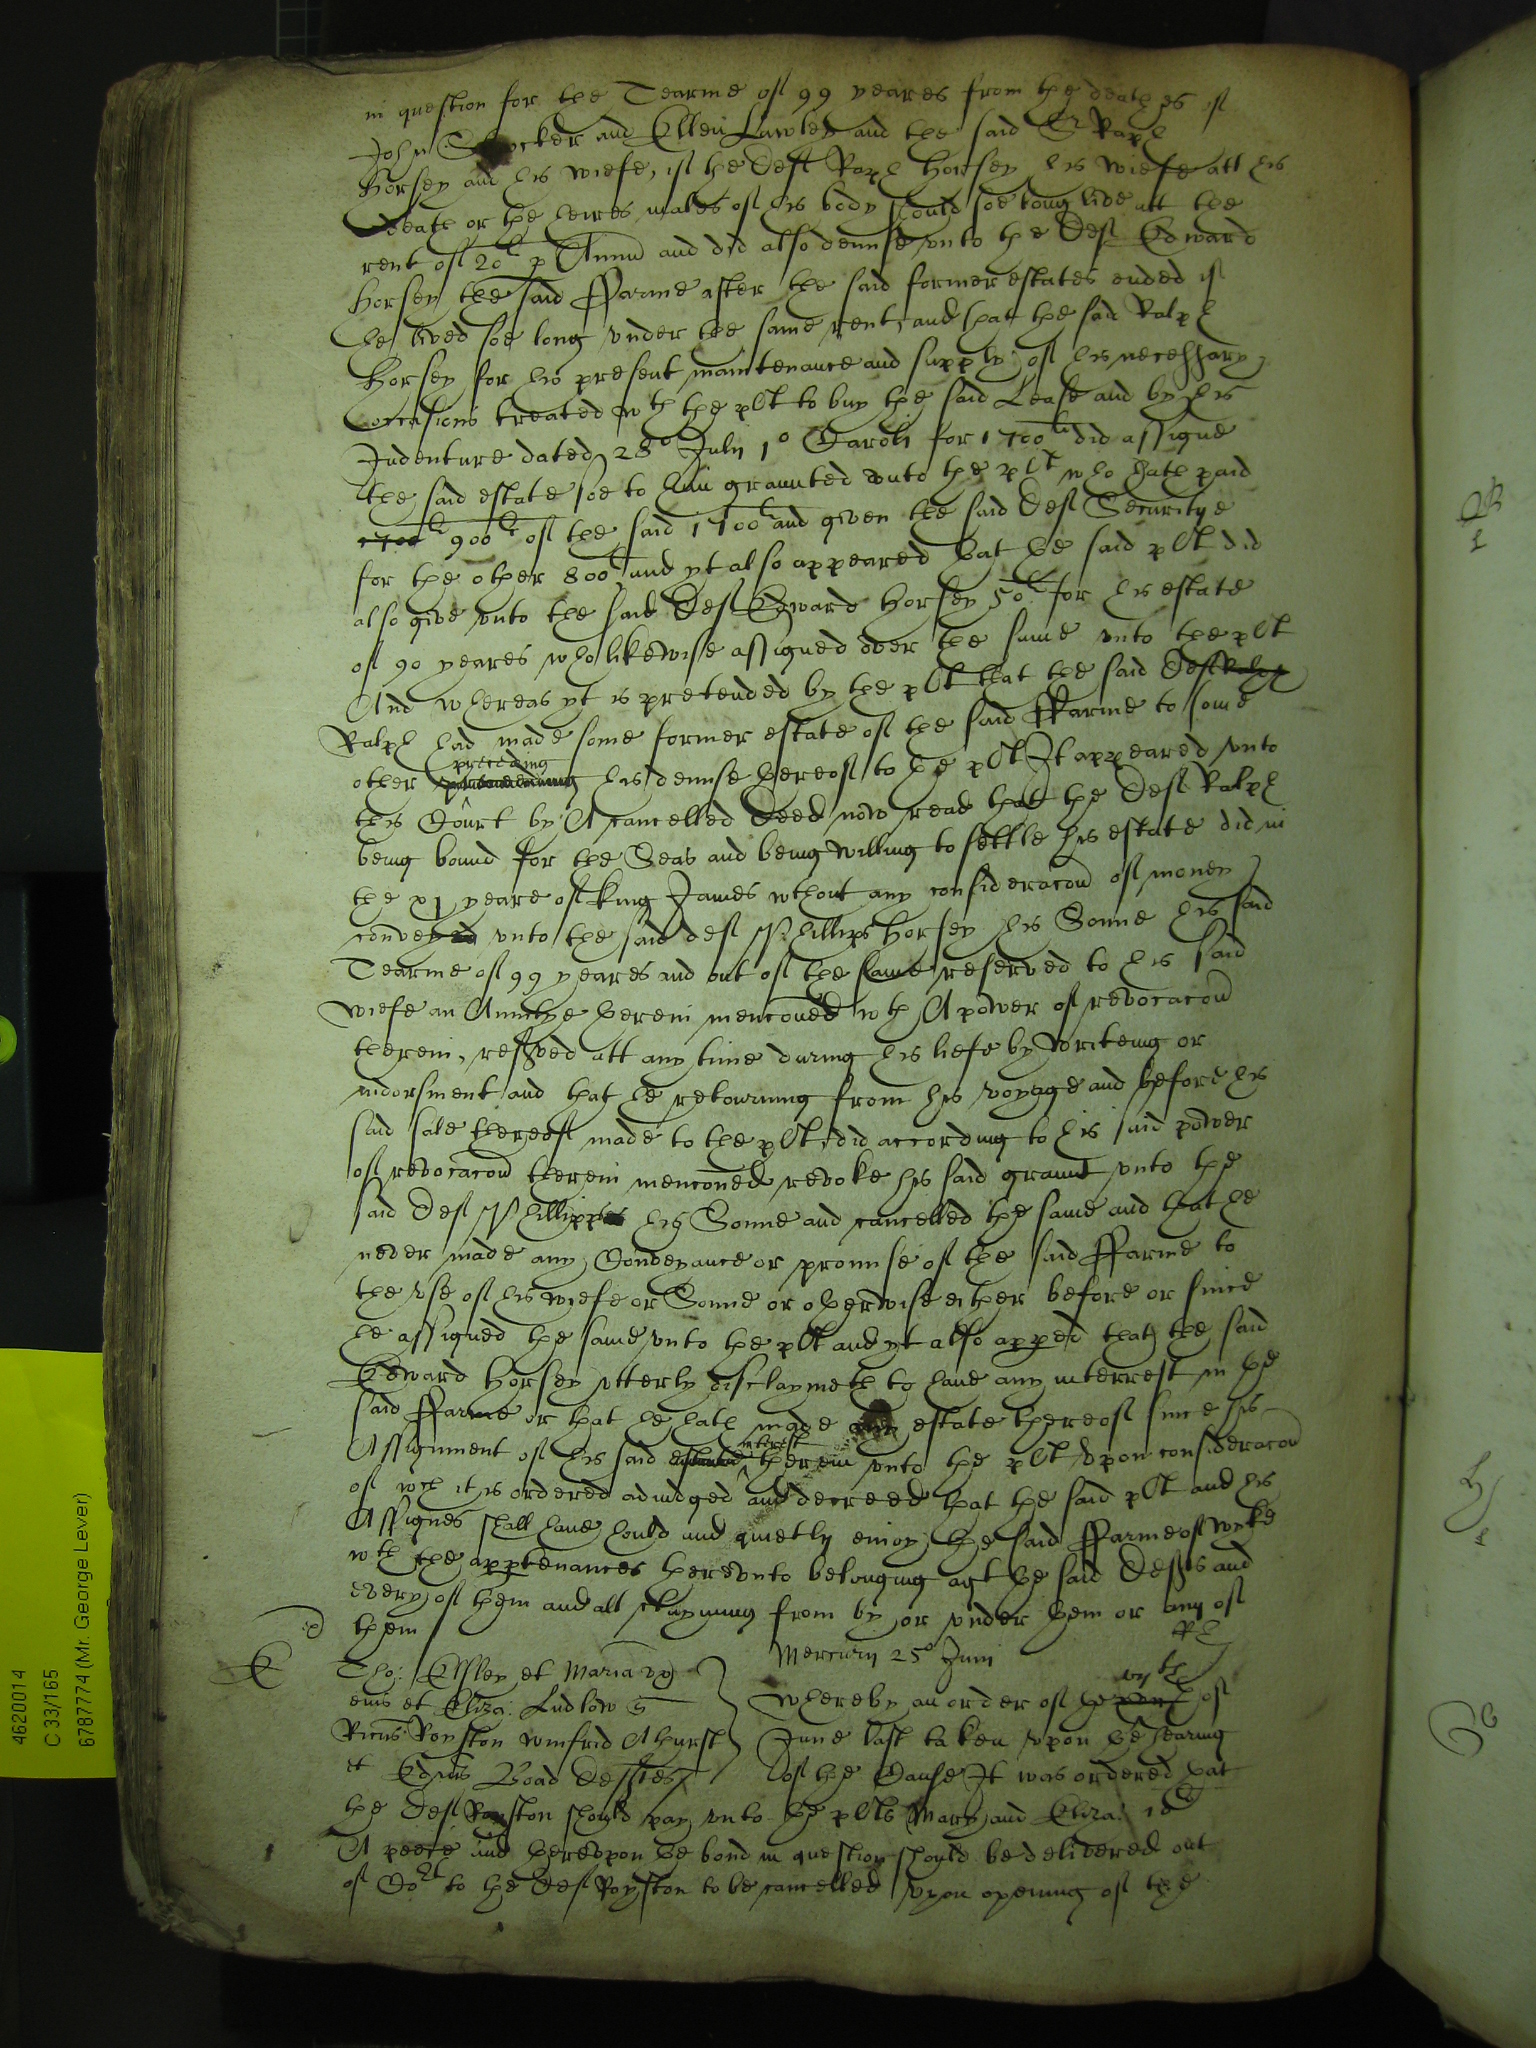 in question for the Tearme of 99 yeares from the deathes of
John Stocker and Ellen Lawley and the said Sr Raph
Horsey and his wiefe, if the Deft Raph Horsey his wiefe att his
death or the heires males of his body should soe long live att the
rent of 20l p Annu and did also demise unto the Def Edward
Horsey the said ffarme after the said former estates ended if
he lived soe long under the same rent, and that the said Ralph
Horsey for his present maintenance and supply of his necessary
occasions treated wth the plt to buy the said Lease and by his
Indenture dated 28o Julij 1o Caroli for 1700li did assigne
the said estate soe to him graunted unto the plt who hath paid
1700l 900l of the said 1700l and given the said Def Securitye
for the other 800l and yt also appeared that the said plt did
also give unto the said Def Edward Horsey 50l for his estate
of 90 yeares who likewise assigned over the same unto the plt
And whereas yt is pretended by the plt that the said Def Ralph
Ralph had made some former estate of the said ffarme to some
preceding
other his demise thereof to the plt It appeared unto
this Court by A cancelled Deed now read that the Def Ralph
being bound for the Seas and being willing to settle his estate did in
the xj yeare of king James wthout any consideracon of money
conveyed unto the said def Phillipp Horsey his Sonne his said
Tearme of 99 yeares and out of the same reserved to his said
wiefe an Annitye therein menconed wth A power of revocacon
therein, reserved att any time during his liefe by writeing or
indorsment and that he retourning from his voyage and before his
said sale thereof made to the plt did according to his said power
of revocacon therein menconed revoke his said graunt unto the
said Def Phillipp his Sonne and cancelled the same and that he
never made any Conveyance or promise of the said ffarme to
the use of his wiefe or Sonne or otherwise either before or since
he assigned the same unto the plt and yt also apped that the said
Edward Horsey utterly disclaymeth to have any interrest in the
said ffarme or that he hath made any estate thereof since his
interest
Assignment of his said therein unto the plt Upon consideracon
of wch it is ordered adiudged and decreed that the said plt and his
Assignes shall have hould and quietly enioy the said ffarme of Wyke
wth the apptenances thereunto belonging agt the said Defts and
every of them and all clayming from by or under them or any of
them
Mercurij 25o Junij
Tho: Elsley et Maria
eius et Eliza: Ludlow
Ricus Royston Winfrid Ahurst
et Edrus Boad Deftes
Whereby an order of the vjth of
June last taken upon the hearing
of the Cause It was ordered that
the Def Royston should pay unto the plts Mary and Eliza: 
A peece and thereupon the bond in question should be delivered out
of Cort to the Def Royston to be cancelled upon opening of the
4620014
C 33/165
6787774 (Mr. George Lever)